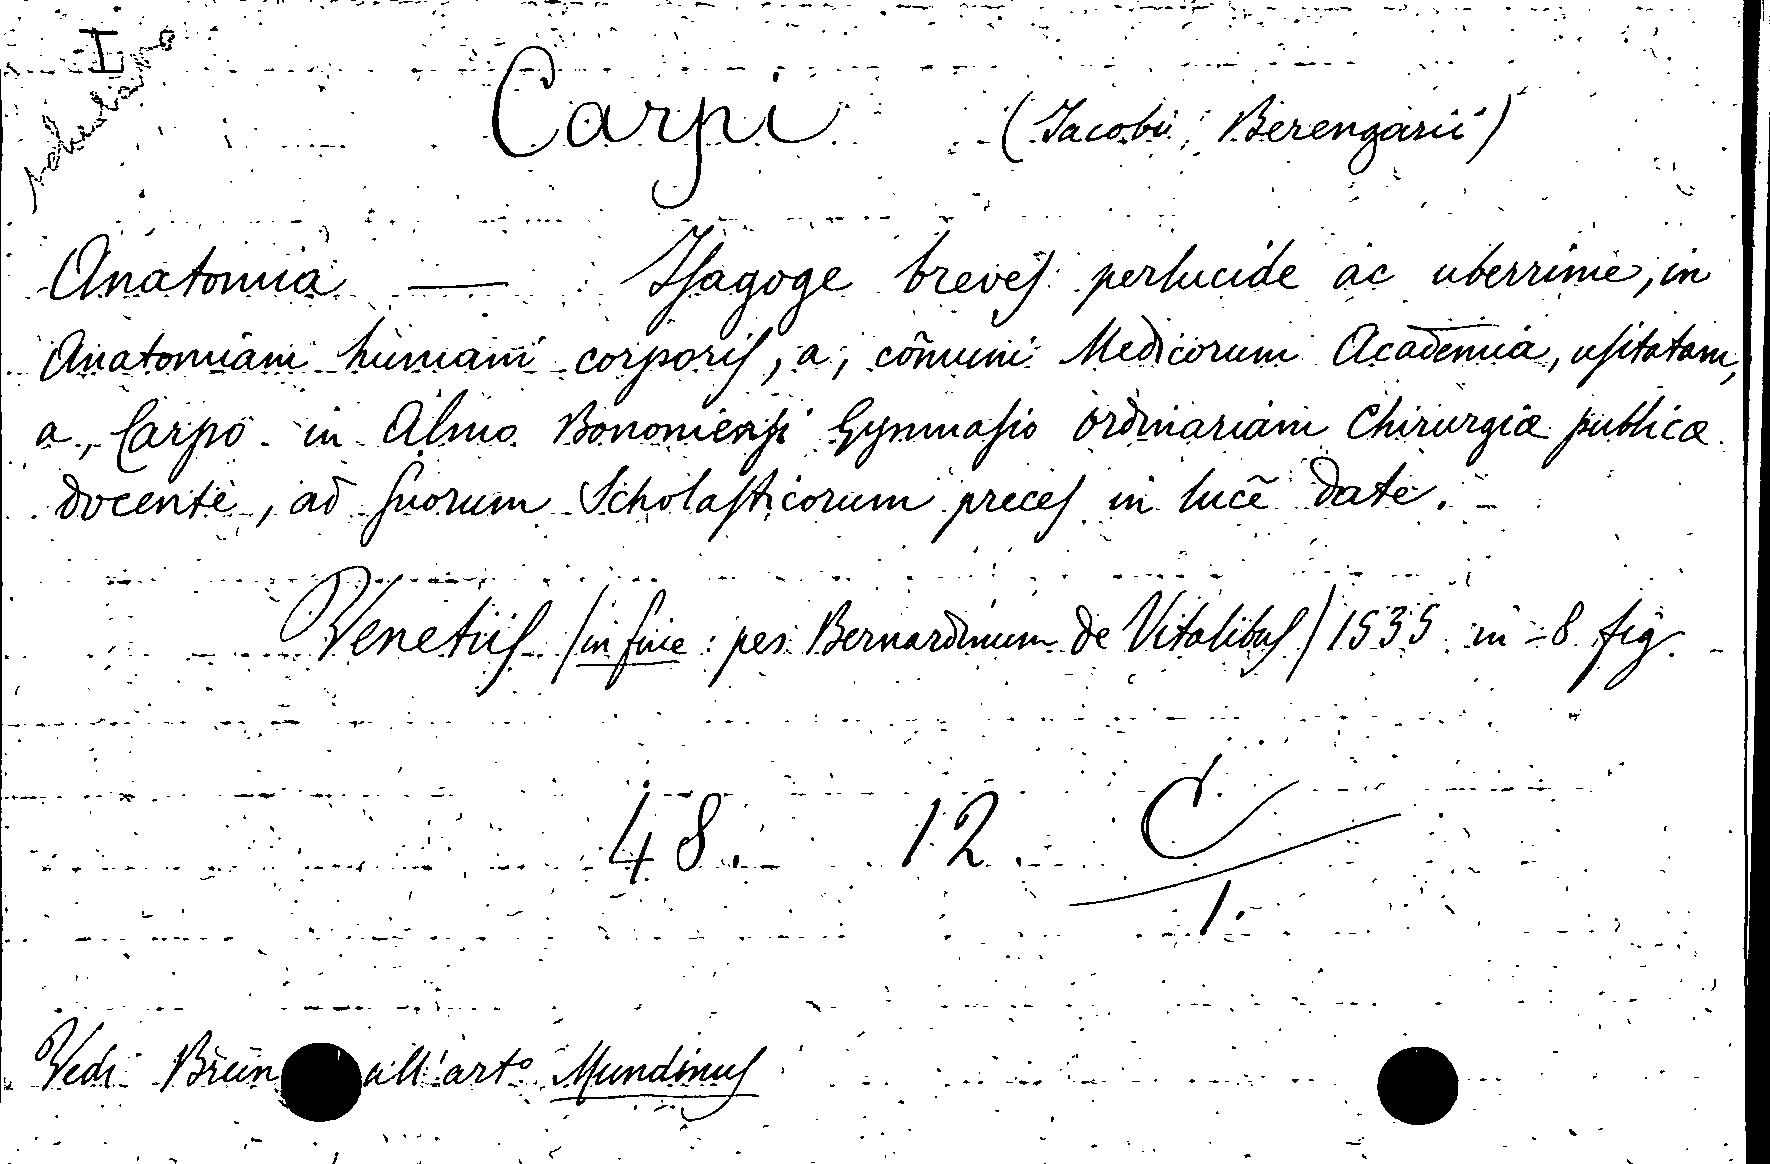 I
Carpi (Jacobi Berengarii)
Anatomia — Isagoge breves perlucide ac uberrime, in
Anatomiam humani corporis, a, cõmuni Medicorum Academia, usitatam,
a, Carpo in Almo Bononiensi Gymnasio ordinariam Chirurgiæ publicæ
docente, ad suorum Scholasticorum preces in lucẽ date.
Venetiis / in fine: per Bernardinum de Vitalibus / 1535 in-8 fig.
48. 12. C
1.
Vedi Brun all'arto Mundinus